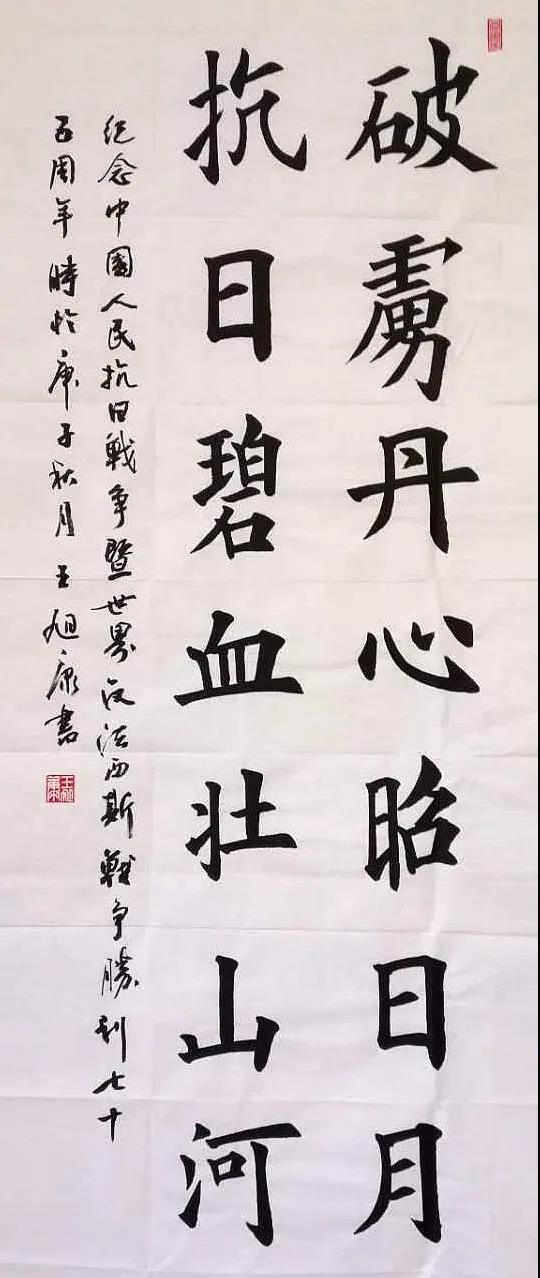 破虜丹心昭日月
抗日碧血壮山河
纪念中國人民抗日戰争暨世界反法西斯戰争勝利七十
五周年時於庚子秋月王旭康書